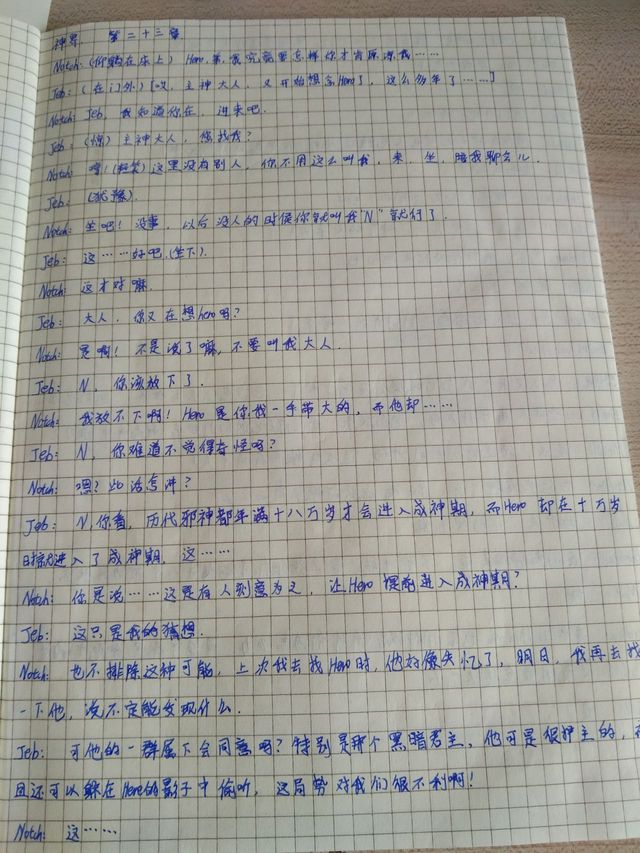 神界. 第二十三章
Notch: (仰躺在床上) Hero,弟,我究竟要怎样你才肯原谅我……
Jeb: (在门外)[哎,主神大人,又开始想念Hero了,这么多年了……]
Notch: Jeb,我知道你在,进来吧.
Jeb: (惊)主神大人,您找我?
Notch: 嗯!(轻笑)这里没有别人,你不用这么叫我,来,坐,陪我聊会儿.
Jeb: (犹豫).
Notch: 坐吧!没事,以后没人的时候你就叫我"N"就行了.
Jeb: 这……好吧.(坐下).
Notch: 这才对嘛.
Jeb: 大人,你又在想hero吗?
Notch: 是啊!不是说了嘛,不要叫我大人.
Jeb: N,你该放下了.
Notch: 我放不下啊!Hero是你我一手带大的,而他却……
Jeb: N,你难道不觉得奇怪吗?
Notch: 嗯?此话怎讲?
Jeb: N,你看,历代邪神都年满十八万岁才会进入成神期,而Hero却在十万岁
时就进入了成神期,这……
Notch: 你是说……这是有人刻意为之,让Hero提前进入成神期?
Jeb: 这只是我的猜想.
Notch: 也不排除这种可能,上次我去找Hero时,他好像失忆了,明日,我再去找
一下他,说不定能发现什么.
Jeb: 可他的一群属下会同意吗?特别是那个黑暗君主,他可是很护主的,
且还可以躲在Hero的影子中偷听,这局势对我们很不利啊!
Notch: 这……